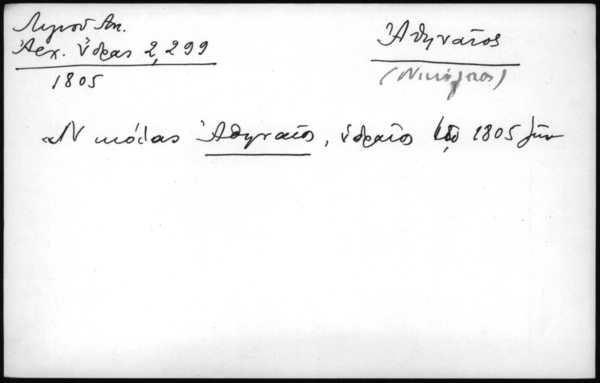 Λιγνοῦ Ἀν.
Ἀρχ. Ὕδρας 2,299
1805
Ἀθηναῖος
(Νικόλαος)
Νικόλας Ἀθηναῖος, ὑδραῖος 1805